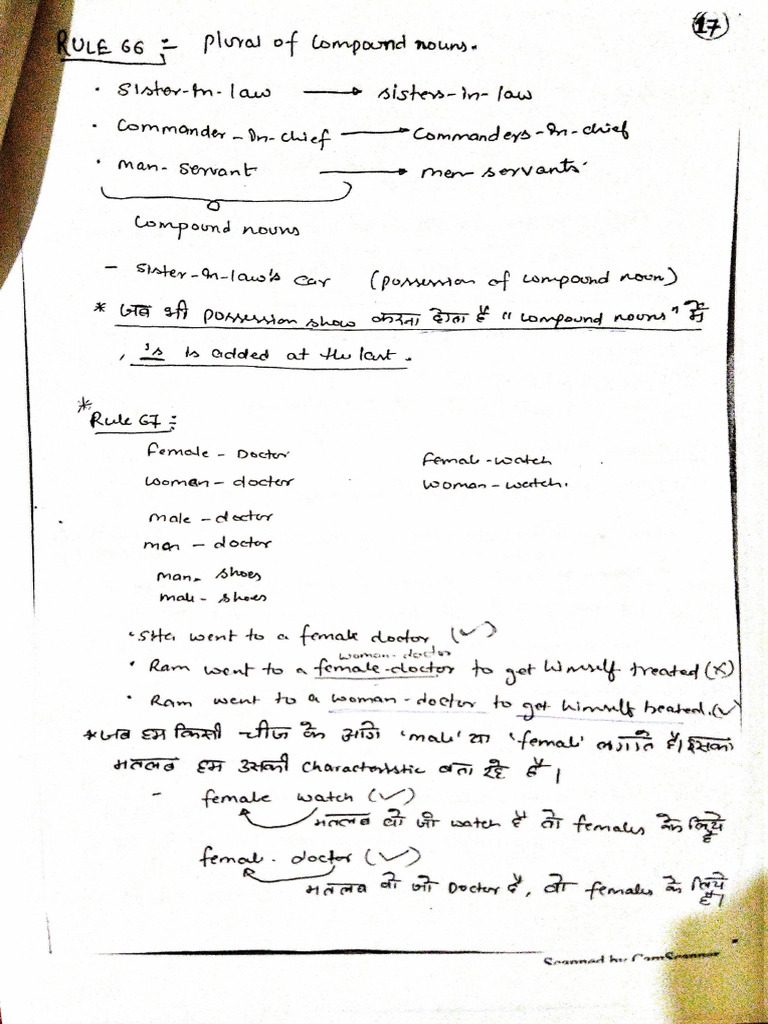 17
RULE 66 :- Plural of compound nouns.
• Sister-in-law → sisters-in-law
• Commander-in-chief → Commanders-in-chief
• man-servant → men-servants
Compound nouns
- Sister-in-law's car (possession of compound noun)
* जब भी possession show करना होता है "compound nouns" में
, 's is added at the last.
* Rule 67 :-
female - Doctor female-watch
woman - doctor woman-watch.
male - doctor
man - doctor
man - shoes
male - shoes
• She went to a female doctor (✓)
woman-doctor
• Ram went to a female-doctor to get himself treated (×)
• Ram went to a woman-doctor to get himself treated. (✓)
* जब हम किसी चीज के आगे 'male' या 'female' लगाते है। इसका
मतलब हम उसकी characteristic बता रहे है।
- female watch (✓)
मतलब वो जो watch है वो females के लिये है
female - doctor (✓)
मतलब वो जो Doctor है, वो females के लिये है।
Scanned by CamScanner